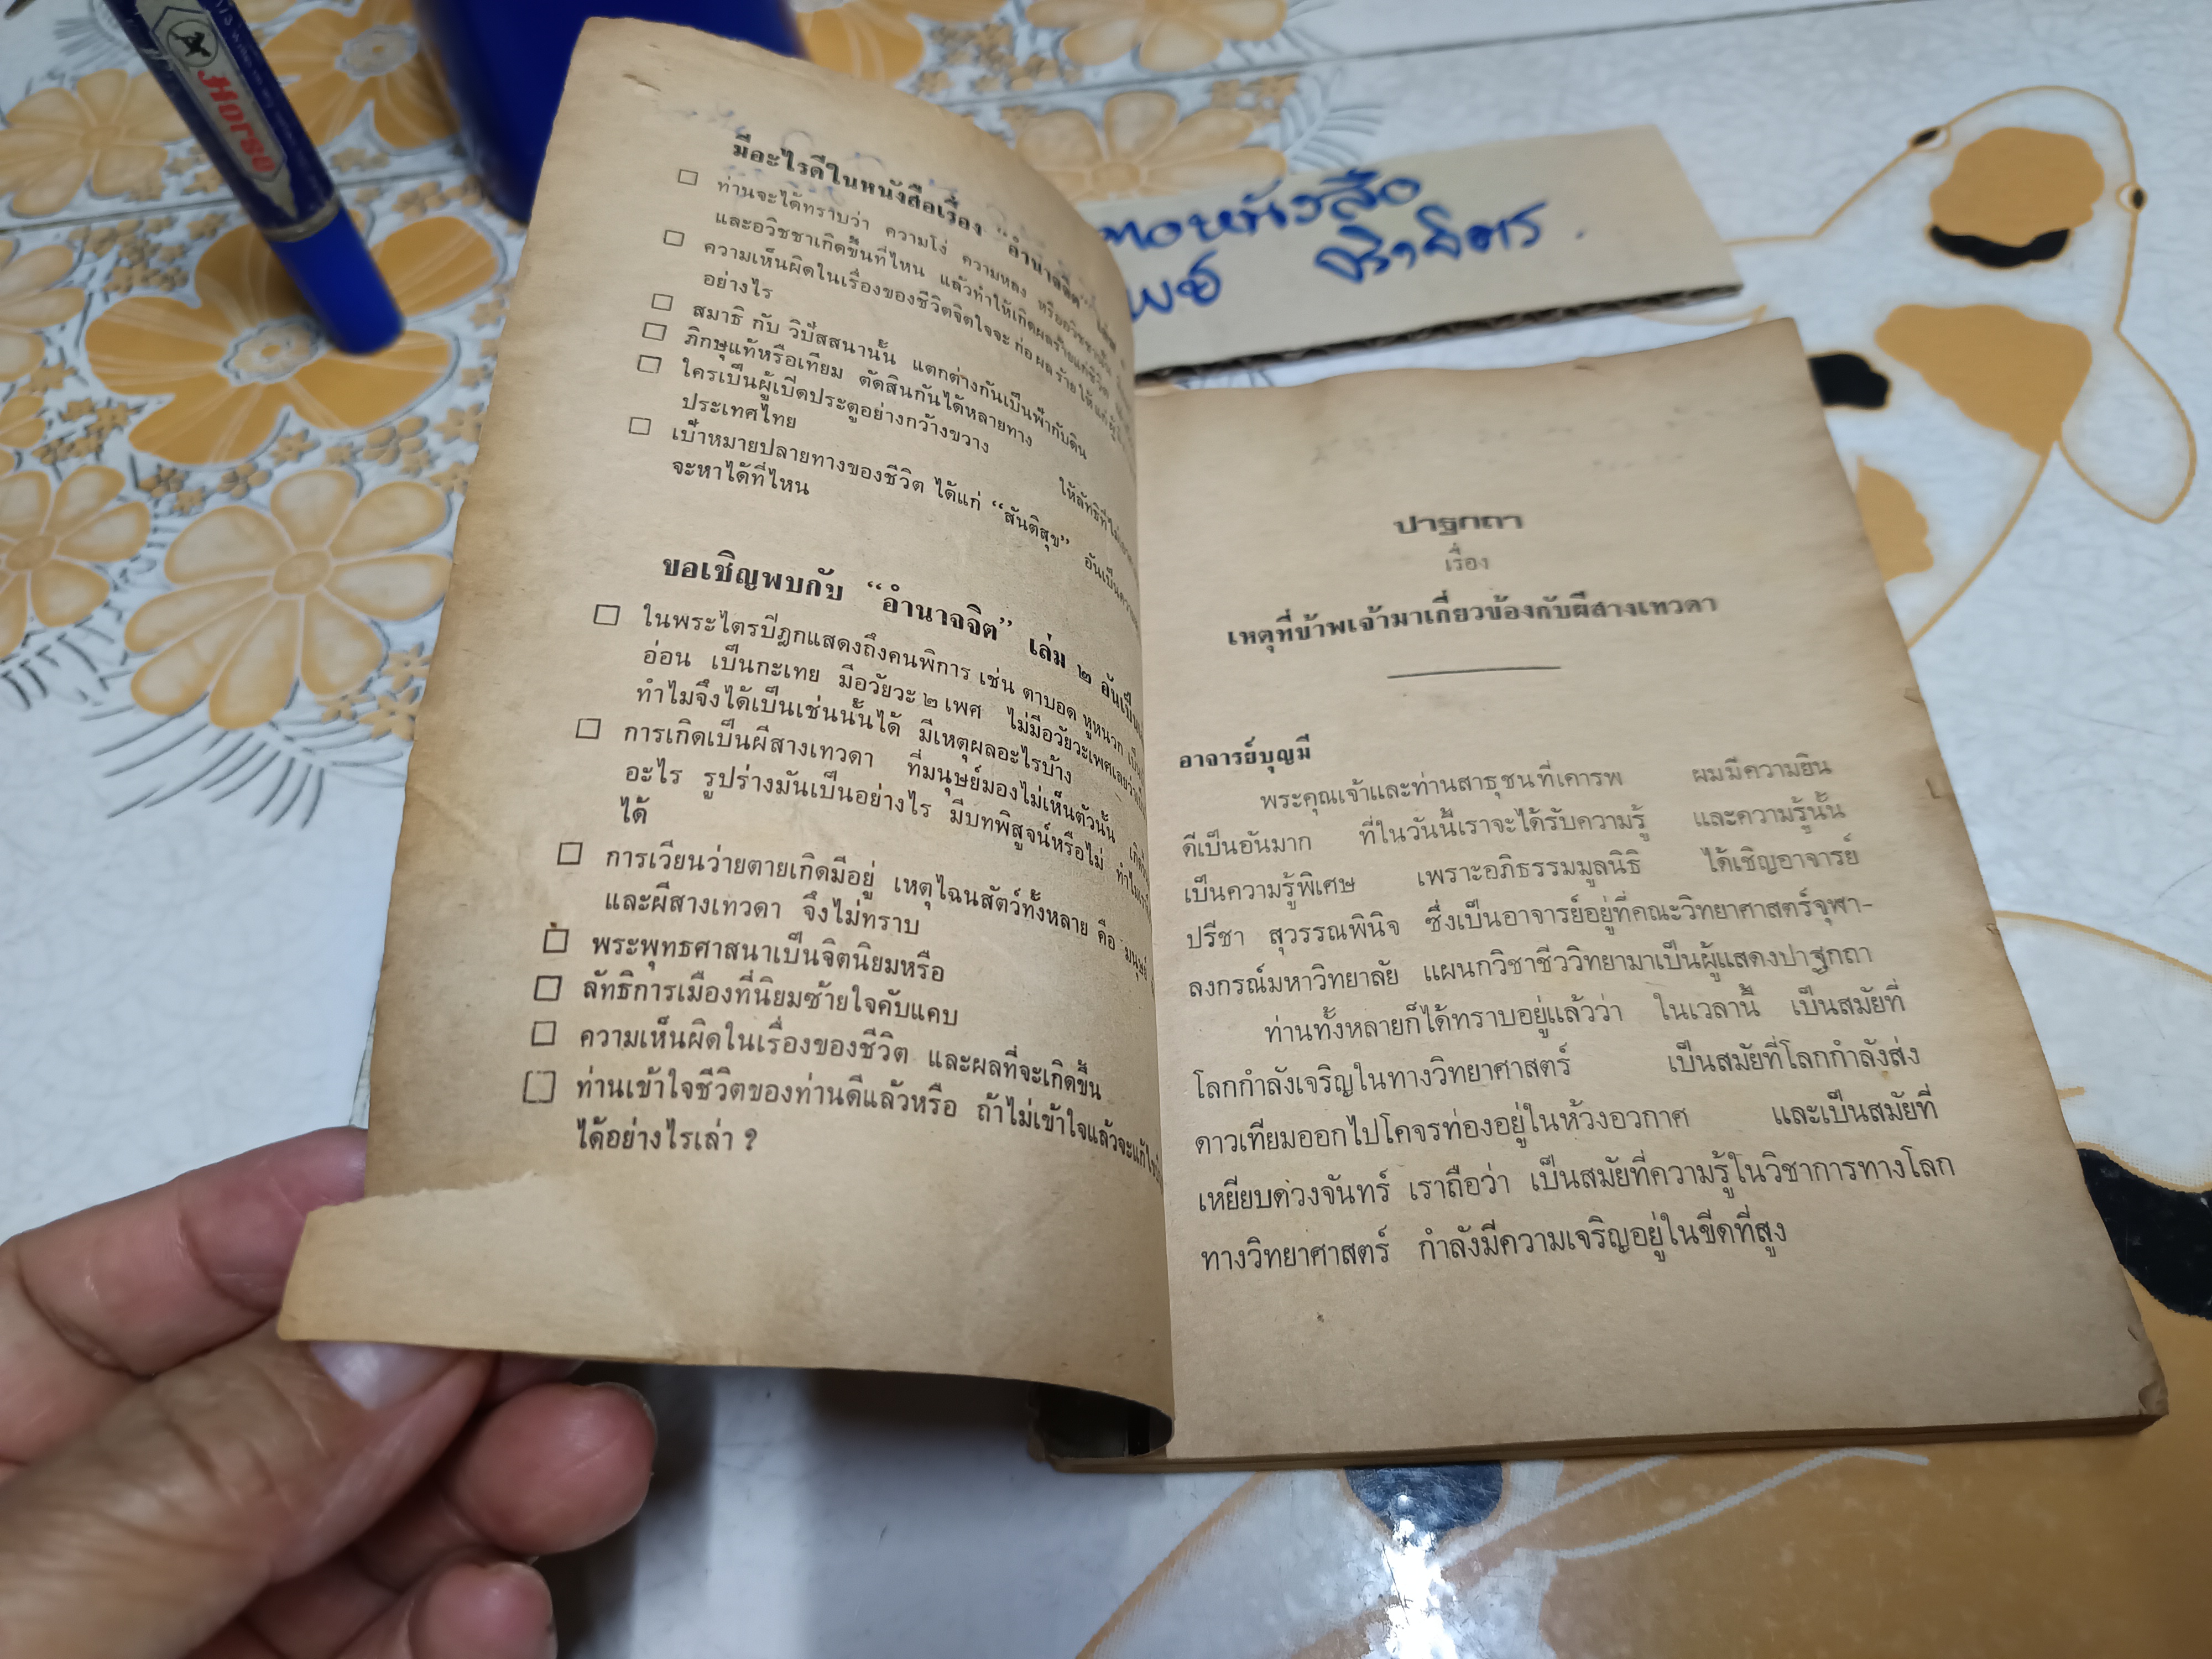 Horse
หนังสือ
มีอะไรดีในหนังสือเรื่อง “อำนาจจิต”
☐ ท่านจะได้ทราบว่า ความโง่ ความหลง หรืออวิชชานั้น
และอวิชชาเกิดขึ้นที่ไหน แล้วทำให้เกิดผลร้ายแก่ชีวิต
☐ ความเห็นผิดในเรื่องของชีวิตจิตใจจะก่อผลร้ายให้แก่
อย่างไร
☐ สมาธิ กับ วิปัสสนานั้น แตกต่างกันเป็นฟ้ากับดิน
☐ ภิกษุแท้หรือเทียม ตัดสินกันได้หลายทาง
☐ ใครเป็นผู้เปิดประตูอย่างกว้างขวาง ให้ลัทธิที่ไม่
ประเทศไทย
☐ เป้าหมายปลายทางของชีวิต ได้แก่ “สันติสุข” อันเป็น
จะหาได้ที่ไหน
ขอเชิญพบกับ “อำนาจจิต” เล่ม ๒ อันเป็น
☐ ในพระไตรปิฎกแสดงถึงคนพิการ เช่น ตาบอด หูหนวก
อ่อน เป็นกะเทย มีอวัยวะ ๒ เพศ ไม่มีอวัยวะเพศเลย
ทำไมจึงได้เป็นเช่นนั้นได้ มีเหตุผลอะไรบ้าง
☐ การเกิดเป็นผีสางเทวดา ที่มนุษย์มองไม่เห็นตัวนั้น
อะไร รูปร่างมันเป็นอย่างไร มีบทพิสูจน์หรือไม่
ได้
☐ การเวียนว่ายตายเกิดมีอยู่ เหตุไฉนสัตว์ทั้งหลาย คือ มนุษย์
และผีสางเทวดา จึงไม่ทราบ
☐ พระพุทธศาสนาเป็นจิตนิยมหรือ
☐ ลัทธิการเมืองที่นิยมซ้ายใจคับแคบ
☐ ความเห็นผิดในเรื่องของชีวิต และผลที่จะเกิดขึ้น
☐ ท่านเข้าใจชีวิตของท่านดีแล้วหรือ ถ้าไม่เข้าใจแล้วจะแก้
ได้อย่างไรเล่า ?
ปาฐกถา
เรื่อง
เหตุที่ข้าพเจ้ามาเกี่ยวข้องกับผีสางเทวดา
อาจารย์บุญมี
พระคุณเจ้าและท่านสาธุชนที่เคารพ ผมมีความยิน
ดีเป็นอันมาก ที่ในวันนี้เราจะได้รับความรู้ และความรู้นั้น
เป็นความรู้พิเศษ เพราะอภิธรรมมูลนิธิ ได้เชิญอาจารย์
ปรีชา สุวรรณพินิจ ซึ่งเป็นอาจารย์อยู่ที่คณะวิทยาศาสตร์จุฬา-
ลงกรณ์มหาวิทยาลัย แผนกวิชาชีววิทยามาเป็นผู้แสดงปาฐกถา
ท่านทั้งหลายก็ได้ทราบอยู่แล้วว่า ในเวลานี้ เป็นสมัยที่
โลกกำลังเจริญในทางวิทยาศาสตร์ เป็นสมัยที่โลกกำลังส่ง
ดาวเทียมออกไปโคจรท่องอยู่ในห้วงอวกาศ และเป็นสมัยที่
เหยียบดวงจันทร์ เราถือว่า เป็นสมัยที่ความรู้ในวิชาการทางโลก
ทางวิทยาศาสตร์ กำลังมีความเจริญอยู่ในขีดที่สูง